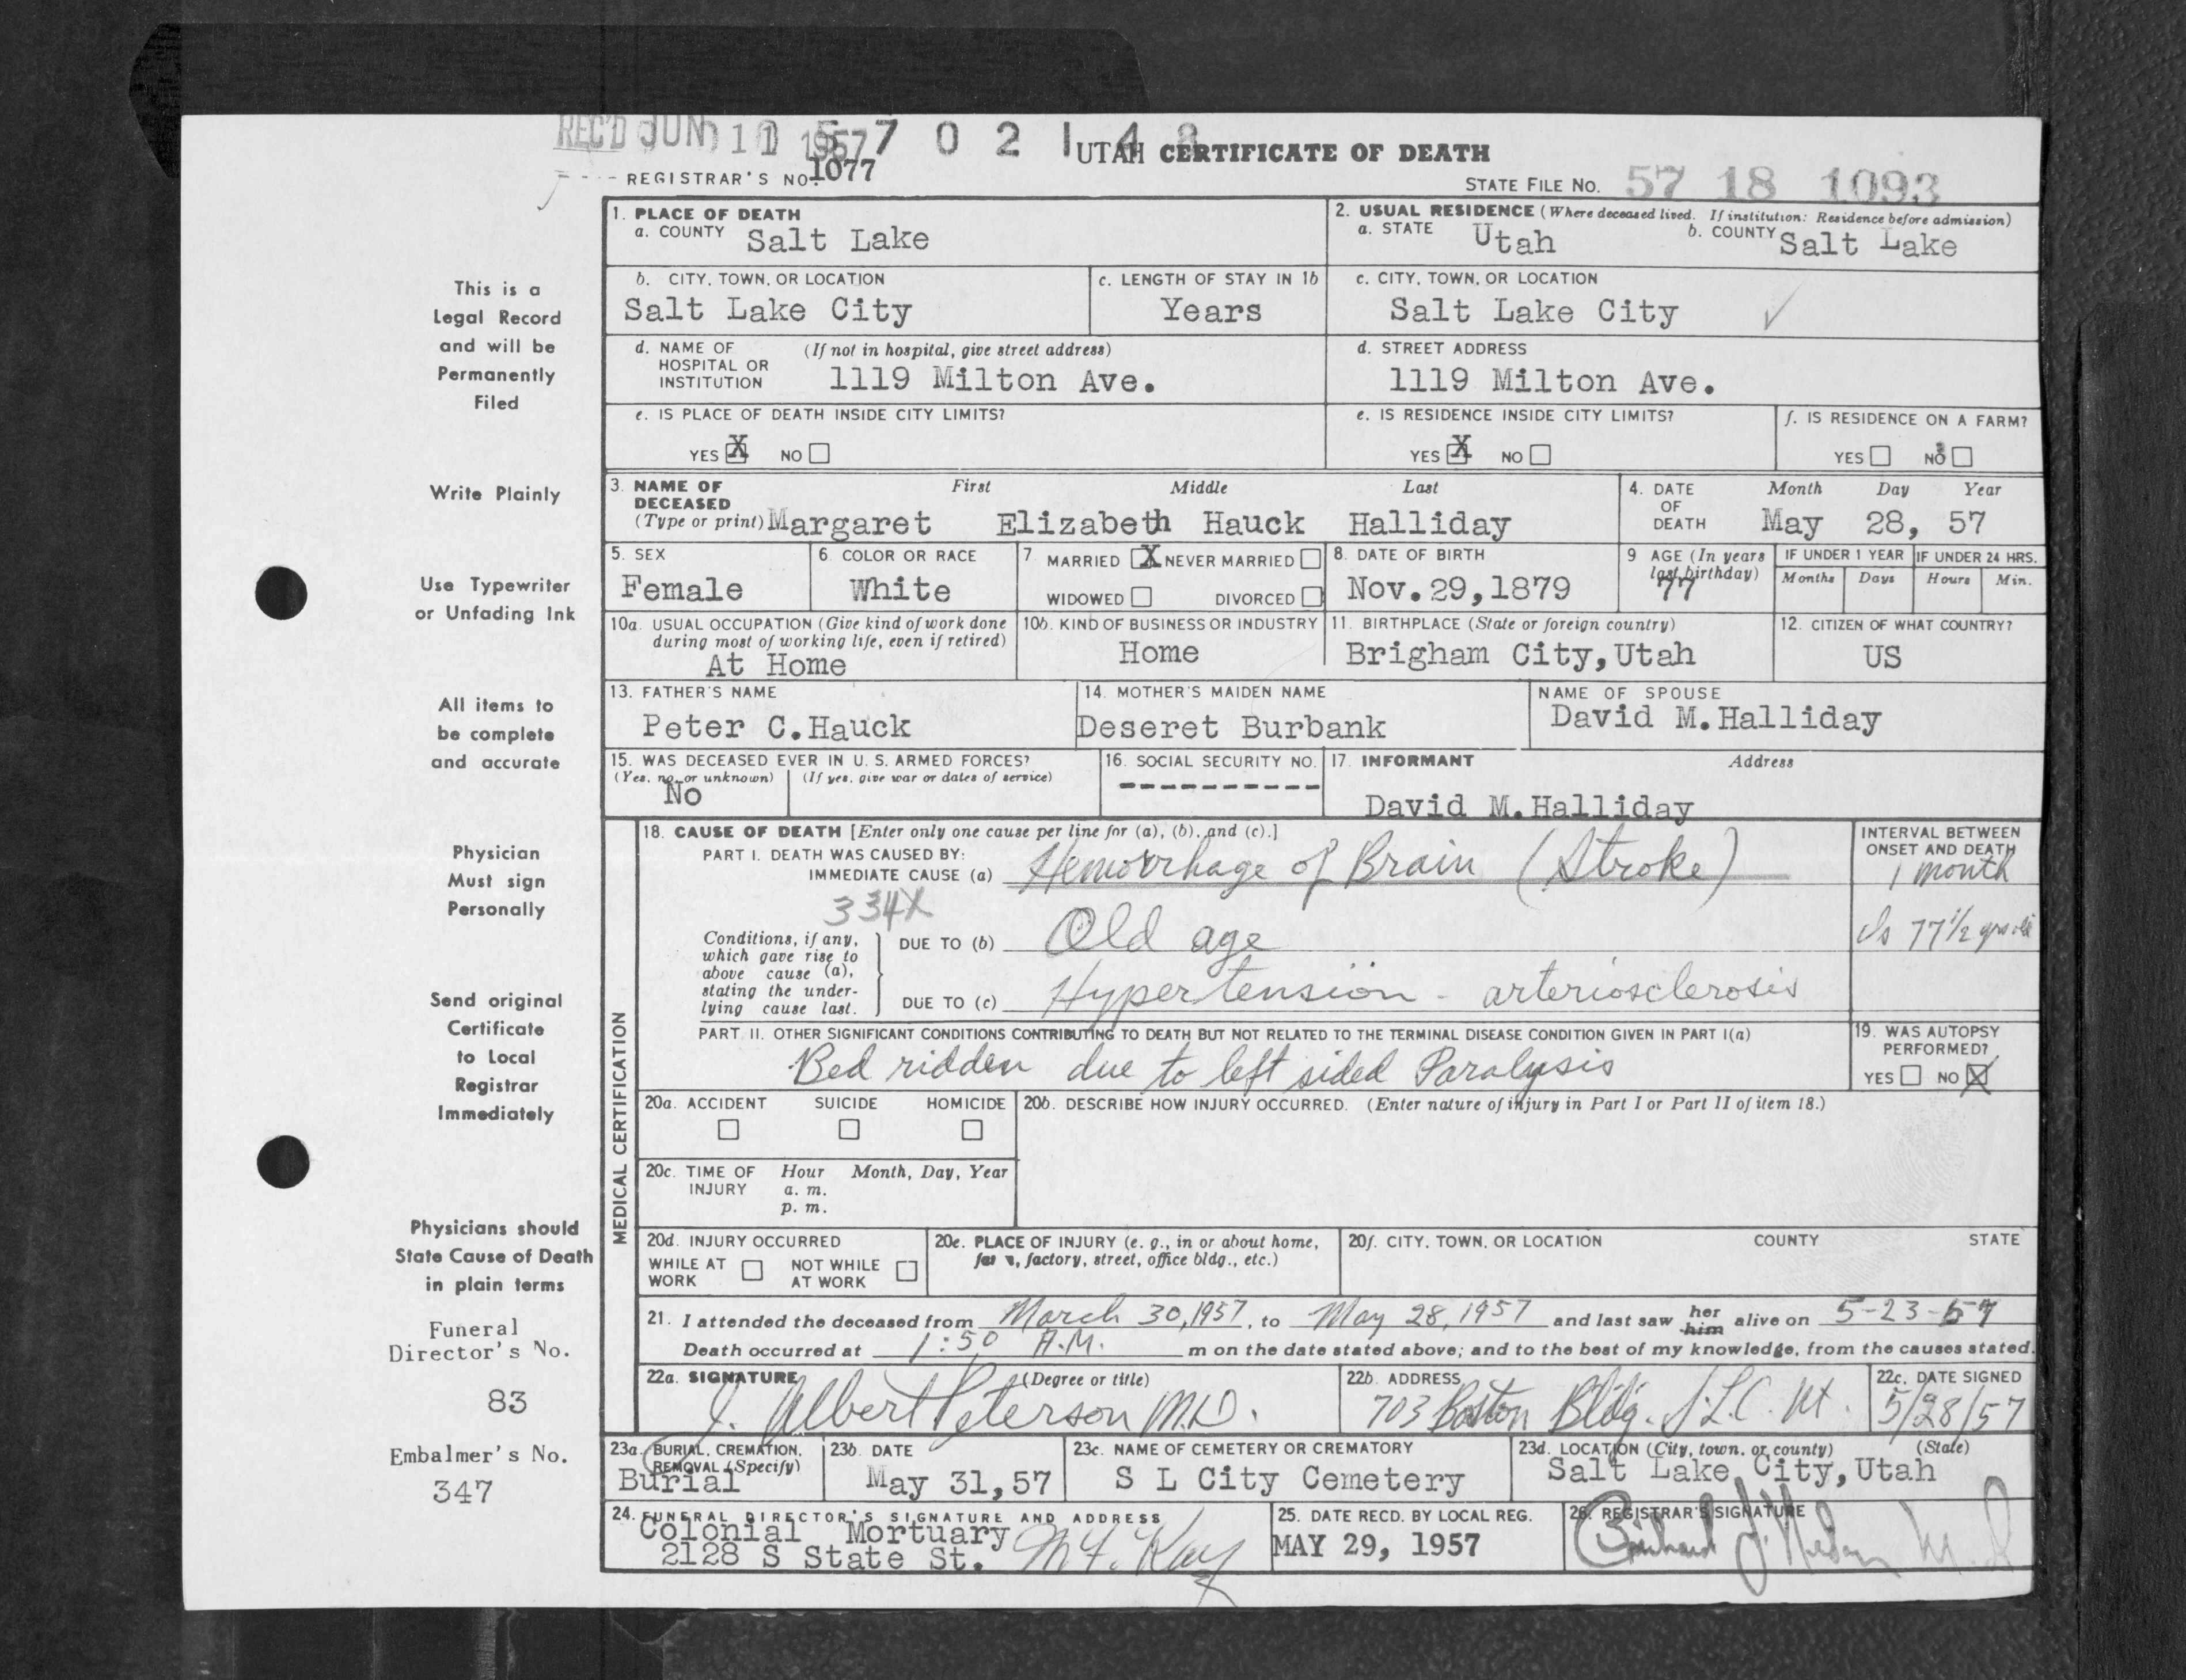 REC'D JUN 11 1957
5 7 0 2 1 4 8
UTAH CERTIFICATE OF DEATH
REGISTRAR'S NO. 1077
STATE FILE NO. 57 18 1093
This is a
Legal Record
and will be
Permanently
Filed
Write Plainly
Use Typewriter
or Unfading Ink
All items to
be complete
and accurate
Physician
Must sign
Personally
Send original
Certificate
to Local
Registrar
Immediately
Physicians should
State Cause of Death
in plain terms
Funeral
Director's No.
83
Embalmer's No.
347
1. PLACE OF DEATH
a. COUNTY Salt Lake
2. USUAL RESIDENCE (Where deceased lived. If institution: Residence before admission)
a. STATE Utah b. COUNTY Salt Lake
b. CITY, TOWN, OR LOCATION
Salt Lake City
c. LENGTH OF STAY IN 1b
Years
c. CITY, TOWN, OR LOCATION
Salt Lake City
d. NAME OF (If not in hospital, give street address)
HOSPITAL OR
INSTITUTION 1119 Milton Ave.
d. STREET ADDRESS
1119 Milton Ave.
e. IS PLACE OF DEATH INSIDE CITY LIMITS?
YES X NO
e. IS RESIDENCE INSIDE CITY LIMITS?
YES X NO
f. IS RESIDENCE ON A FARM?
YES NO
3. NAME OF First Middle Last
DECEASED
(Type or print) Margaret Elizabeth Hauck Halliday
4. DATE Month Day Year
OF
DEATH May 28, 57
5. SEX
Female
6. COLOR OR RACE
White
7 MARRIED X NEVER MARRIED
WIDOWED DIVORCED
8. DATE OF BIRTH
Nov. 29, 1879
9 AGE (In years
last birthday)
77
IF UNDER 1 YEAR
Months Days
IF UNDER 24 HRS.
Hours Min.
10a. USUAL OCCUPATION (Give kind of work done
during most of working life, even if retired)
At Home
10b. KIND OF BUSINESS OR INDUSTRY
Home
11. BIRTHPLACE (State or foreign country)
Brigham City, Utah
12. CITIZEN OF WHAT COUNTRY?
US
13. FATHER'S NAME
Peter C. Hauck
14. MOTHER'S MAIDEN NAME
Deseret Burbank
NAME OF SPOUSE
David M. Halliday
15. WAS DECEASED EVER IN U. S. ARMED FORCES?
(Yes, no, or unknown) (If yes, give war or dates of service)
No
16. SOCIAL SECURITY NO.
----------
17. INFORMANT Address
David M. Halliday
MEDICAL CERTIFICATION
18. CAUSE OF DEATH [Enter only one cause per line for (a), (b), and (c).]
PART I. DEATH WAS CAUSED BY:
IMMEDIATE CAUSE (a) Hemorrhage of Brain (Stroke)
334X
Conditions, if any,
which gave rise to
above cause (a),
stating the under-
lying cause last.
DUE TO (b) Old age
DUE TO (c) Hypertension - arteriosclerosis
INTERVAL BETWEEN
ONSET AND DEATH
1 month
Is 77 1/2 yrs old
PART II. OTHER SIGNIFICANT CONDITIONS CONTRIBUTING TO DEATH BUT NOT RELATED TO THE TERMINAL DISEASE CONDITION GIVEN IN PART I(a)
Bed ridden due to left sided Paralysis
19. WAS AUTOPSY
PERFORMED?
YES NO X
20a. ACCIDENT SUICIDE HOMICIDE
20b. DESCRIBE HOW INJURY OCCURRED. (Enter nature of injury in Part I or Part II of item 18.)
20c. TIME OF Hour Month, Day, Year
INJURY a. m.
p. m.
20d. INJURY OCCURRED
WHILE AT NOT WHILE
WORK AT WORK
20e. PLACE OF INJURY (e. g., in or about home,
factory, street, office bldg., etc.)
20f. CITY, TOWN, OR LOCATION COUNTY STATE
21. I attended the deceased from March 30, 1957, to May 28, 1957 and last saw her him alive on 5-23-57
Death occurred at 1:50 A.M. m on the date stated above; and to the best of my knowledge, from the causes stated.
22a. SIGNATURE (Degree or title)
J. Albert Peterson M.D.
22b. ADDRESS
703 Boston Bldg. S.L.C. Ut.
22c. DATE SIGNED
5/28/57
23a. BURIAL, CREMATION,
REMOVAL (Specify)
Burial
23b. DATE
May 31, 57
23c. NAME OF CEMETERY OR CREMATORY
S L City Cemetery
23d. LOCATION (City, town, or county) (State)
Salt Lake City, Utah
24. FUNERAL DIRECTOR'S SIGNATURE AND ADDRESS
Colonial Mortuary
2128 S State St.
25. DATE RECD. BY LOCAL REG.
MAY 29, 1957
26. REGISTRAR'S SIGNATURE